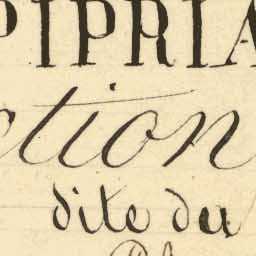 PIPRIA
ction
dite du